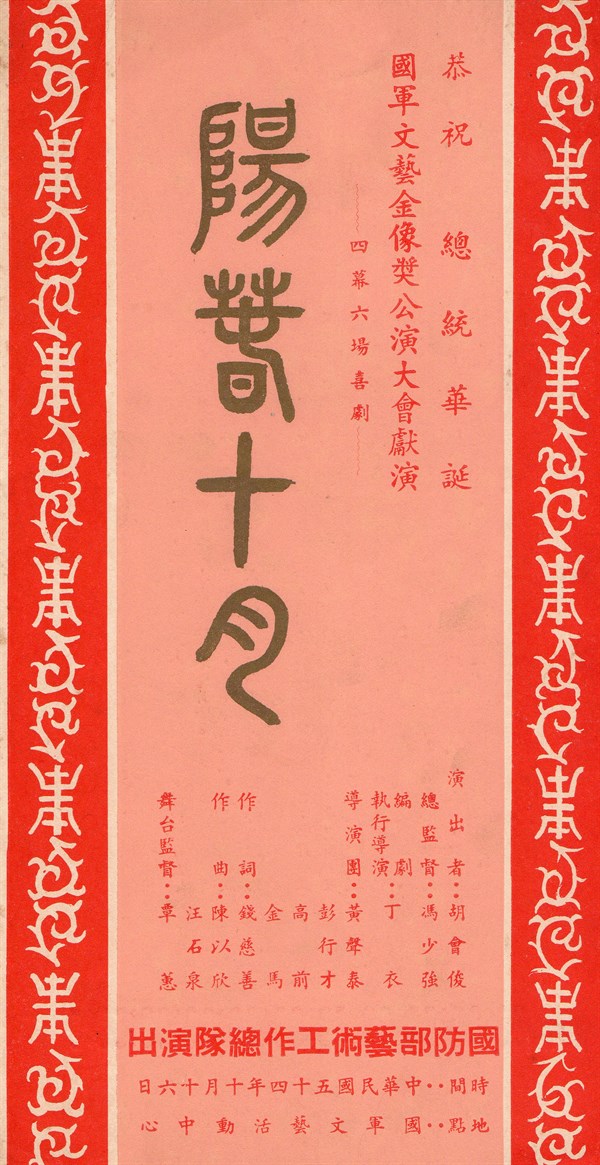 恭祝 總統華誕
國軍文藝金像奬公演大會獻演
四幕六場喜劇
陽春十月
演出者：胡會俊
總監督：馮少強
編劇
執行導演：丁衣
導演團：黃聲泰
彭行才
高前
金馬
作詞：錢慈善
作曲：陳以欣
汪石泉
舞台監督：覃蕙
國防部藝術工作總隊演出
時間：中華民國五十四年十月十六日
地點：國軍文藝活動中心